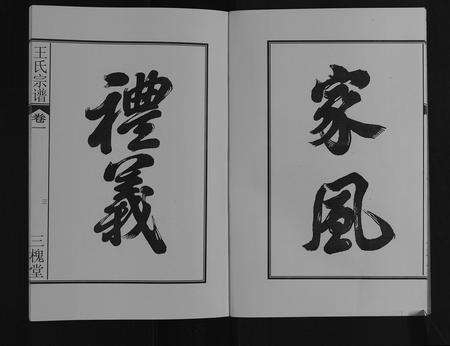 家風
禮義
王氏宗谱
卷一
三
三槐堂